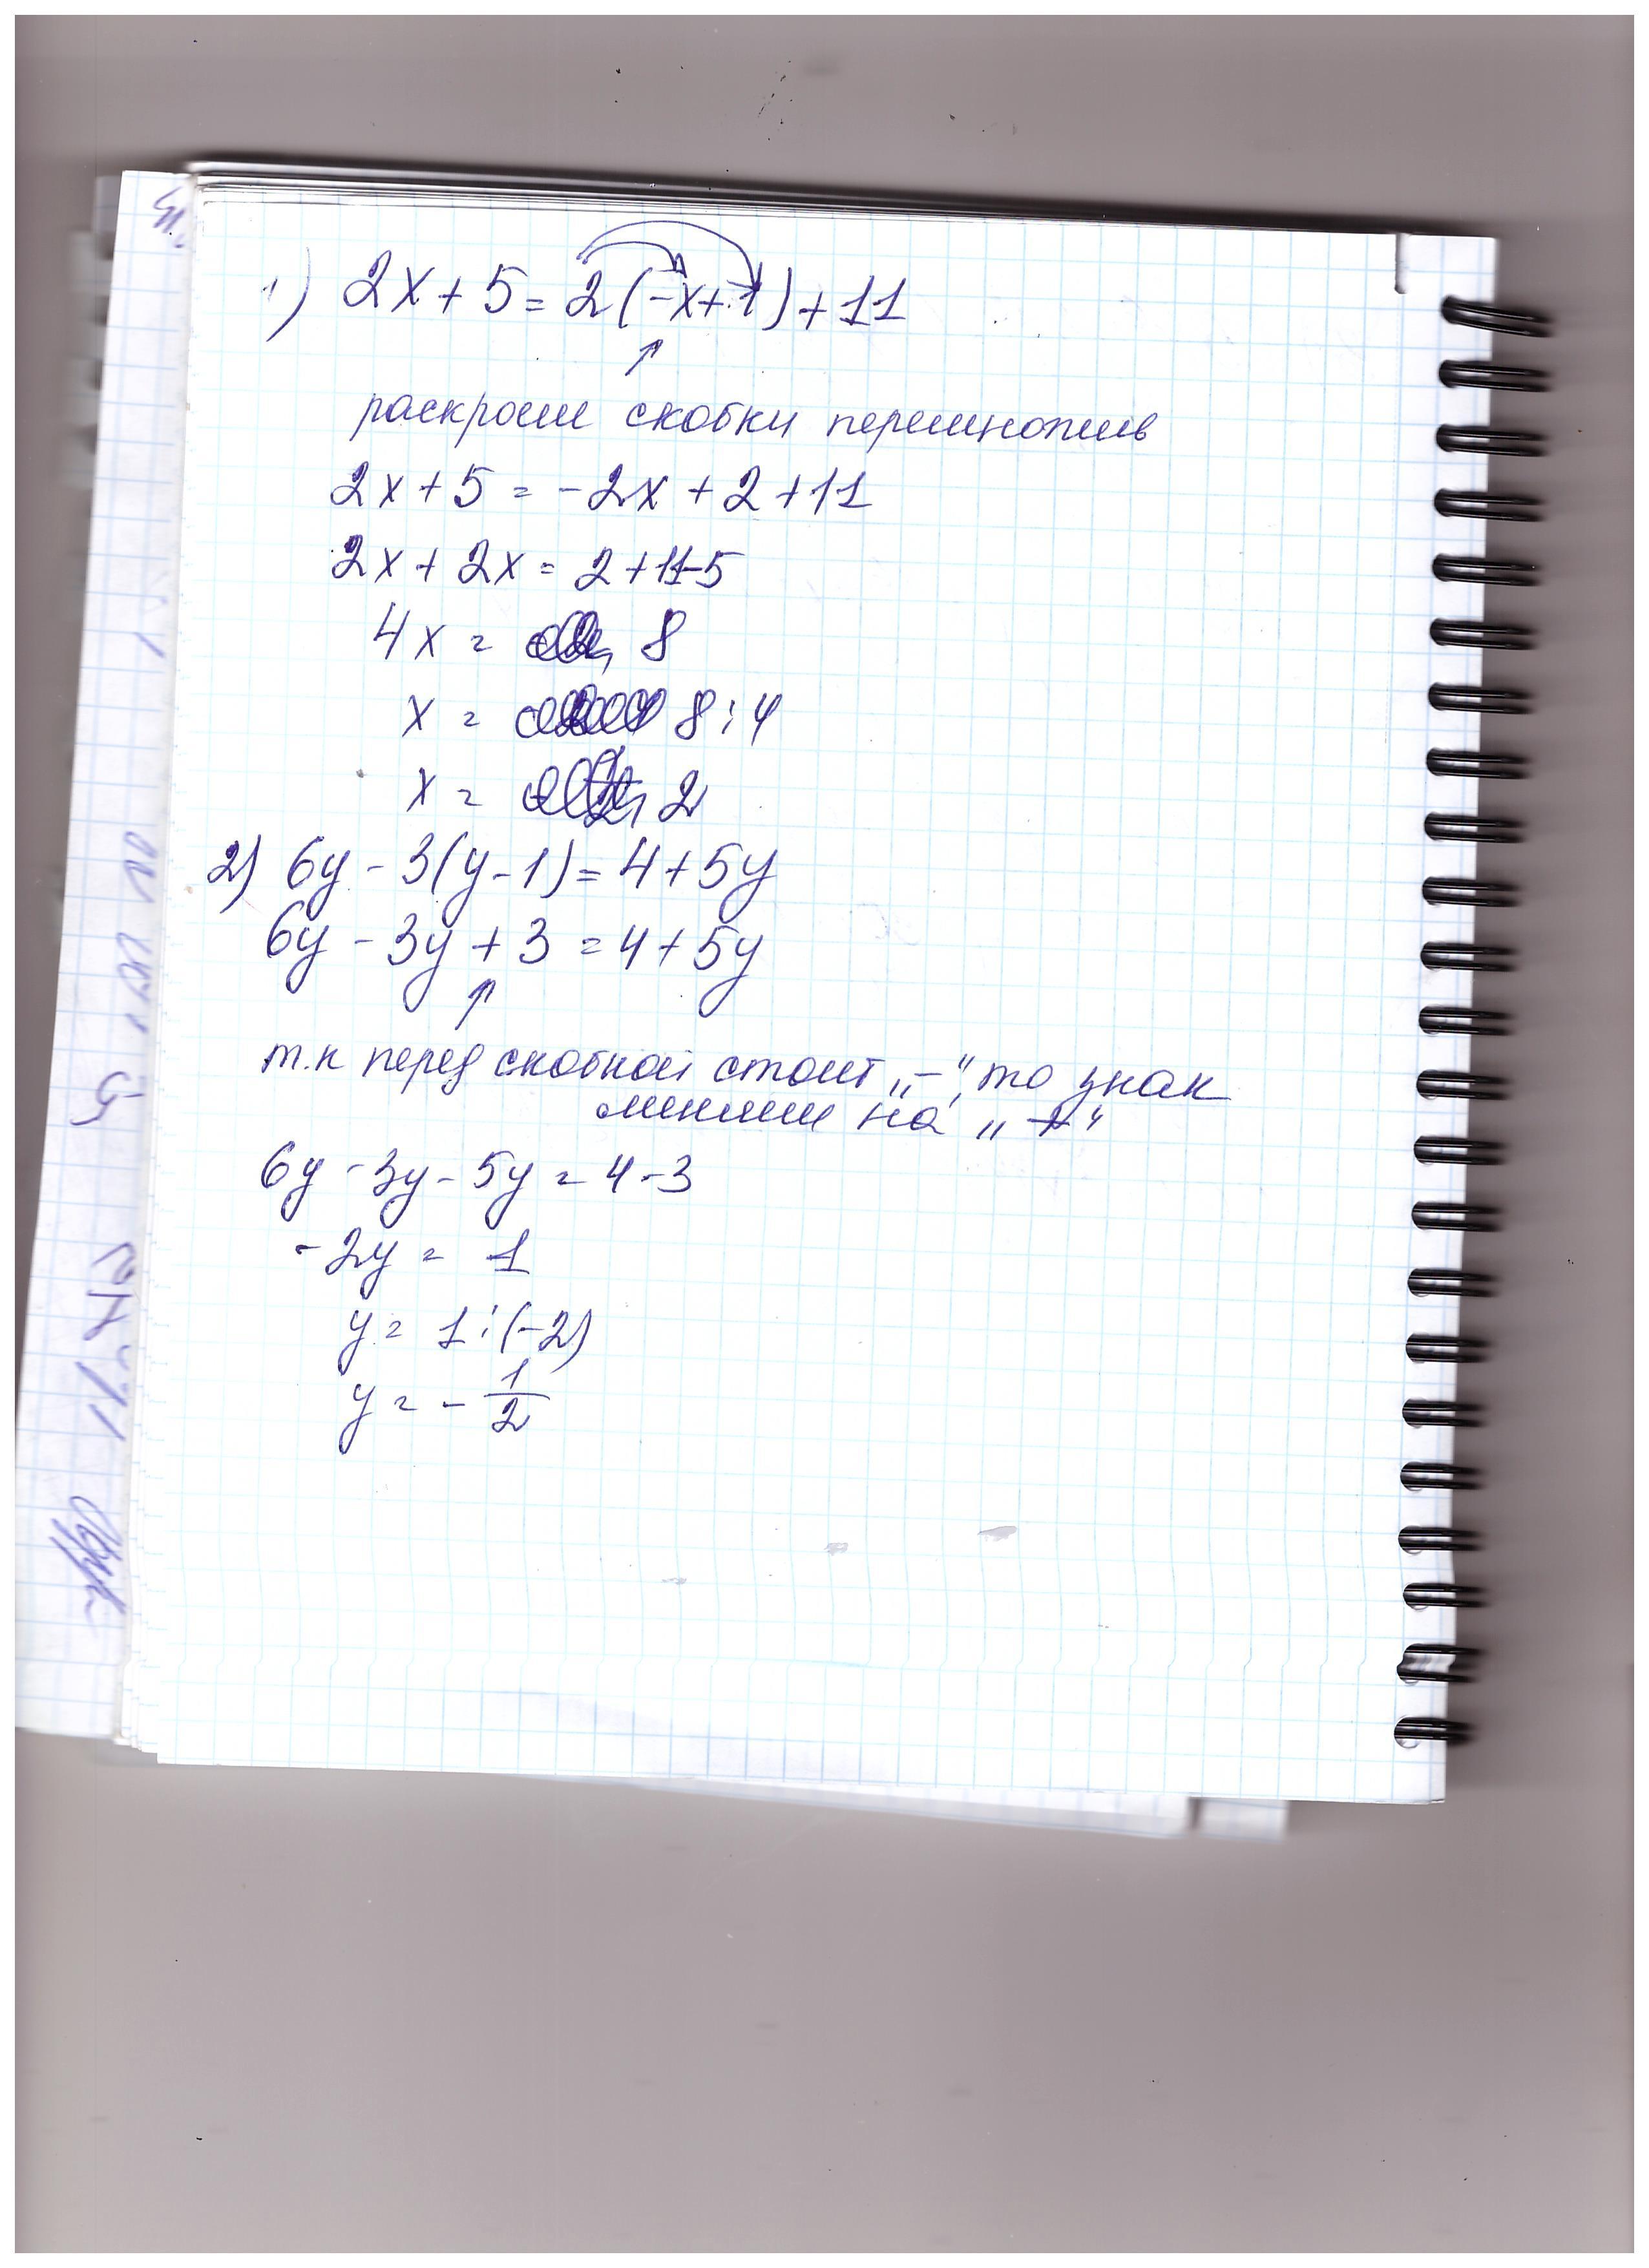 1) 2x + 5 = 2(-x+1) + 11
раскроем скобки перемножив
2x + 5 = -2x + 2 + 11
2x + 2x = 2 + 11 - 5
4x = 8
x = 8 : 4
x = 2
2) 6y - 3(y - 1) = 4 + 5y
6y - 3y + 3 = 4 + 5y
т.к перед скобкой стоит „-“, то знак
меняем на „+“
6y - 3y - 5y = 4 - 3
-2y = 1
y = 1 : (-2)
y = - 1/2